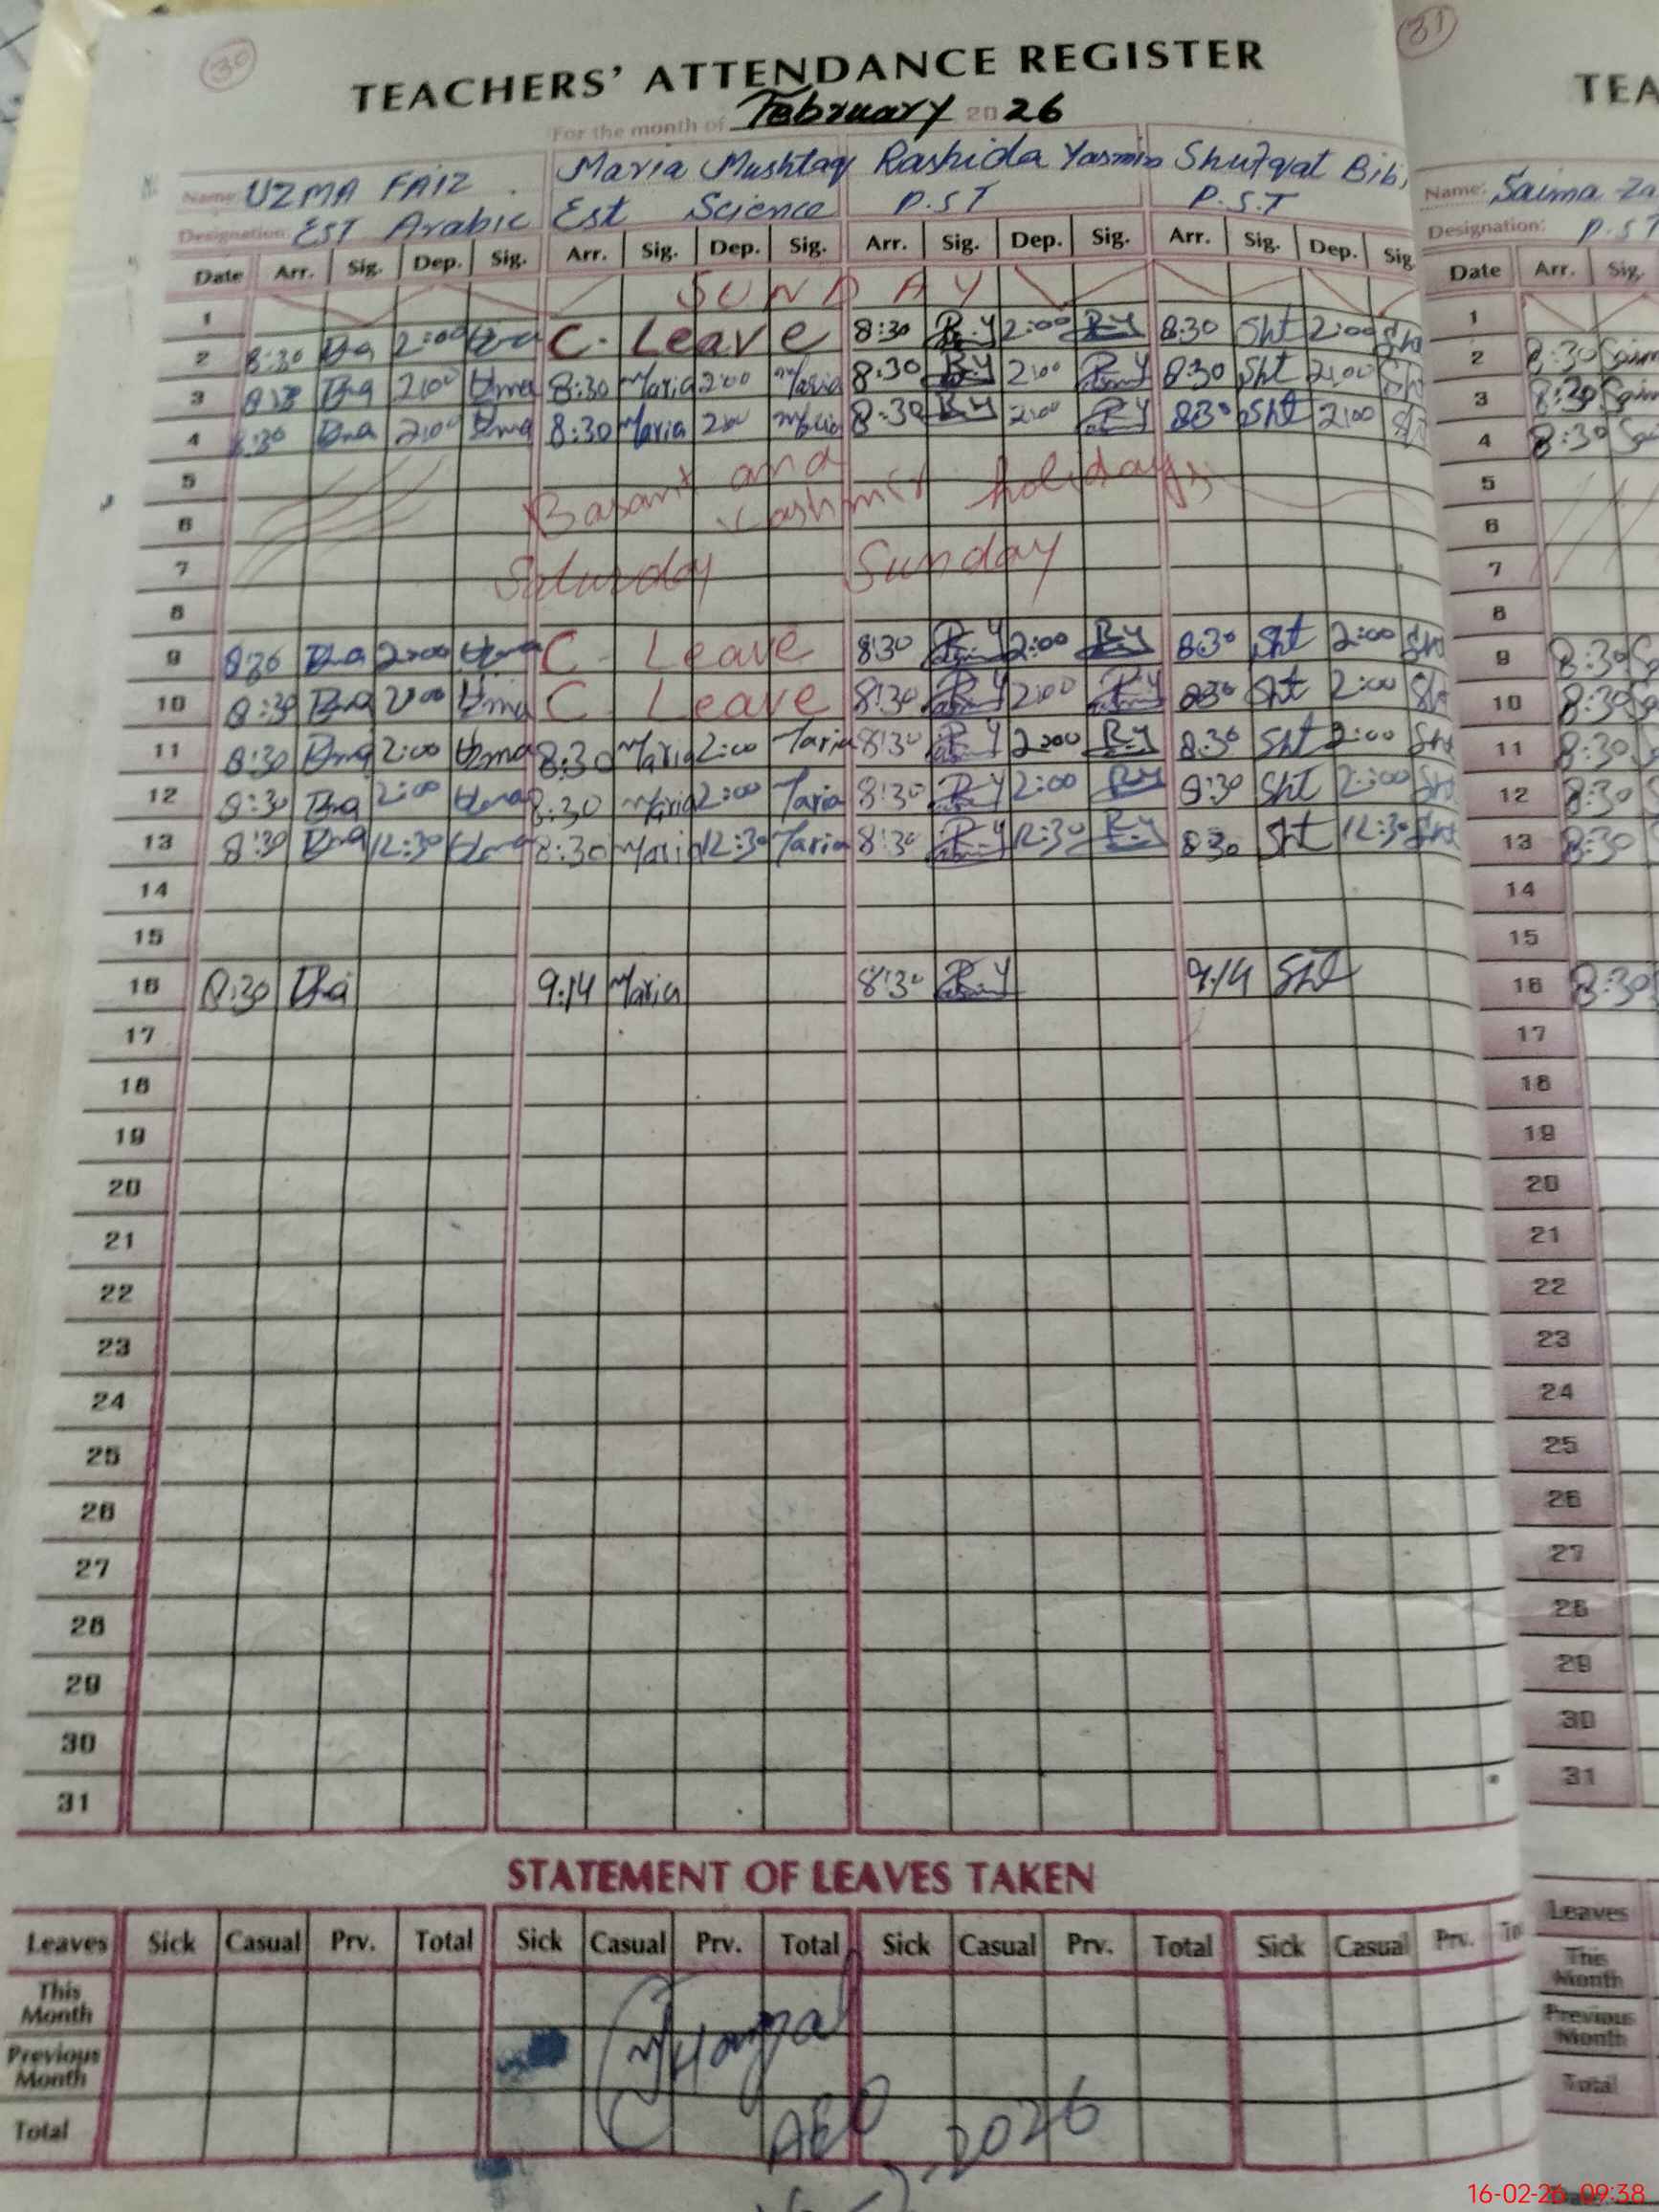 30
TEACHERS' ATTENDANCE REGISTER
For the month of February 2026
Name: UZMA FAIZ Maria Mushtaq Rashida Yasmin Shufqat Bibi
Designation: EST Arabic Est Science P.ST P.S.T
Date Arr. Sig. Dep. Sig. Arr. Sig. Dep. Sig. Arr. Sig. Dep. Sig. Arr. Sig. Dep. Sig
1 SUNDAY
2 8:30 2:00 C. Leave 8:30 R.Y 2:00 R.Y 8:30 Sht 2:00 Sht
3 2:00 Uzma 8:30 Maria 2:00 Maria 8:30 R.Y 2:00 R.Y 8:30 Sht 2:00 Sht
4 8:30 2:00 Uzma 8:30 Maria 2:00 Maria 8:30 R.Y 2:00 R.Y 830 Sht 2:00
5 Basant and
6 Kashmir holidays
7 Saturday Sunday
8
9 830 2:00 Uzma C - Leave 8:30 R.Y 2:00 R.Y 8:30 Sht 2:00 Sht
10 8:30 2:00 Uzma C Leave 8:30 R.Y 2:00 R.Y 830 Sht 2:00 Sht
11 8:30 2:00 Uzma 8:30 Maria 2:00 Maria 8:30 R.Y 2:00 R.Y 8:30 Sht 2:00 Sht
12 8:30 2:00 Uzma 8:30 Maria 2:00 Maria 8:30 R.Y 2:00 R.Y 8:30 Sht 2:00 Sht
13 8:30 12:30 Uzma 8:30 Maria 12:30 Maria 8:30 R.Y 12:30 R.Y 8:30 Sht 12:30 Sht
14
15
16 8:30 9:14 Maria 8:30 R.Y 9:14 Sht
17
18
19
20
21
22
23
24
25
26
27
28
29
30
31
STATEMENT OF LEAVES TAKEN
Leaves Sick Casual Prv. Total Sick Casual Prv. Total Sick Casual Prv. Total Sick Casual Prv. To
This Month
Previous Month
Total
AEO
2026
31
TEA
Name: Saima Za
Designation: P.ST
Date Arr. Sig.
1
2 8:30 Saim
3 8:30 Saim
4 8:30 Sai
5
6
7
8
9 8:30 Sa
10 8:30 Sa
11 8:30 S
12 8:30 S
13 8:30
14
15
16 8:30
17
18
19
20
21
22
23
24
25
26
27
28
29
30
31
Leaves
This Month
Previous Month
Total
16-02-26 09:38